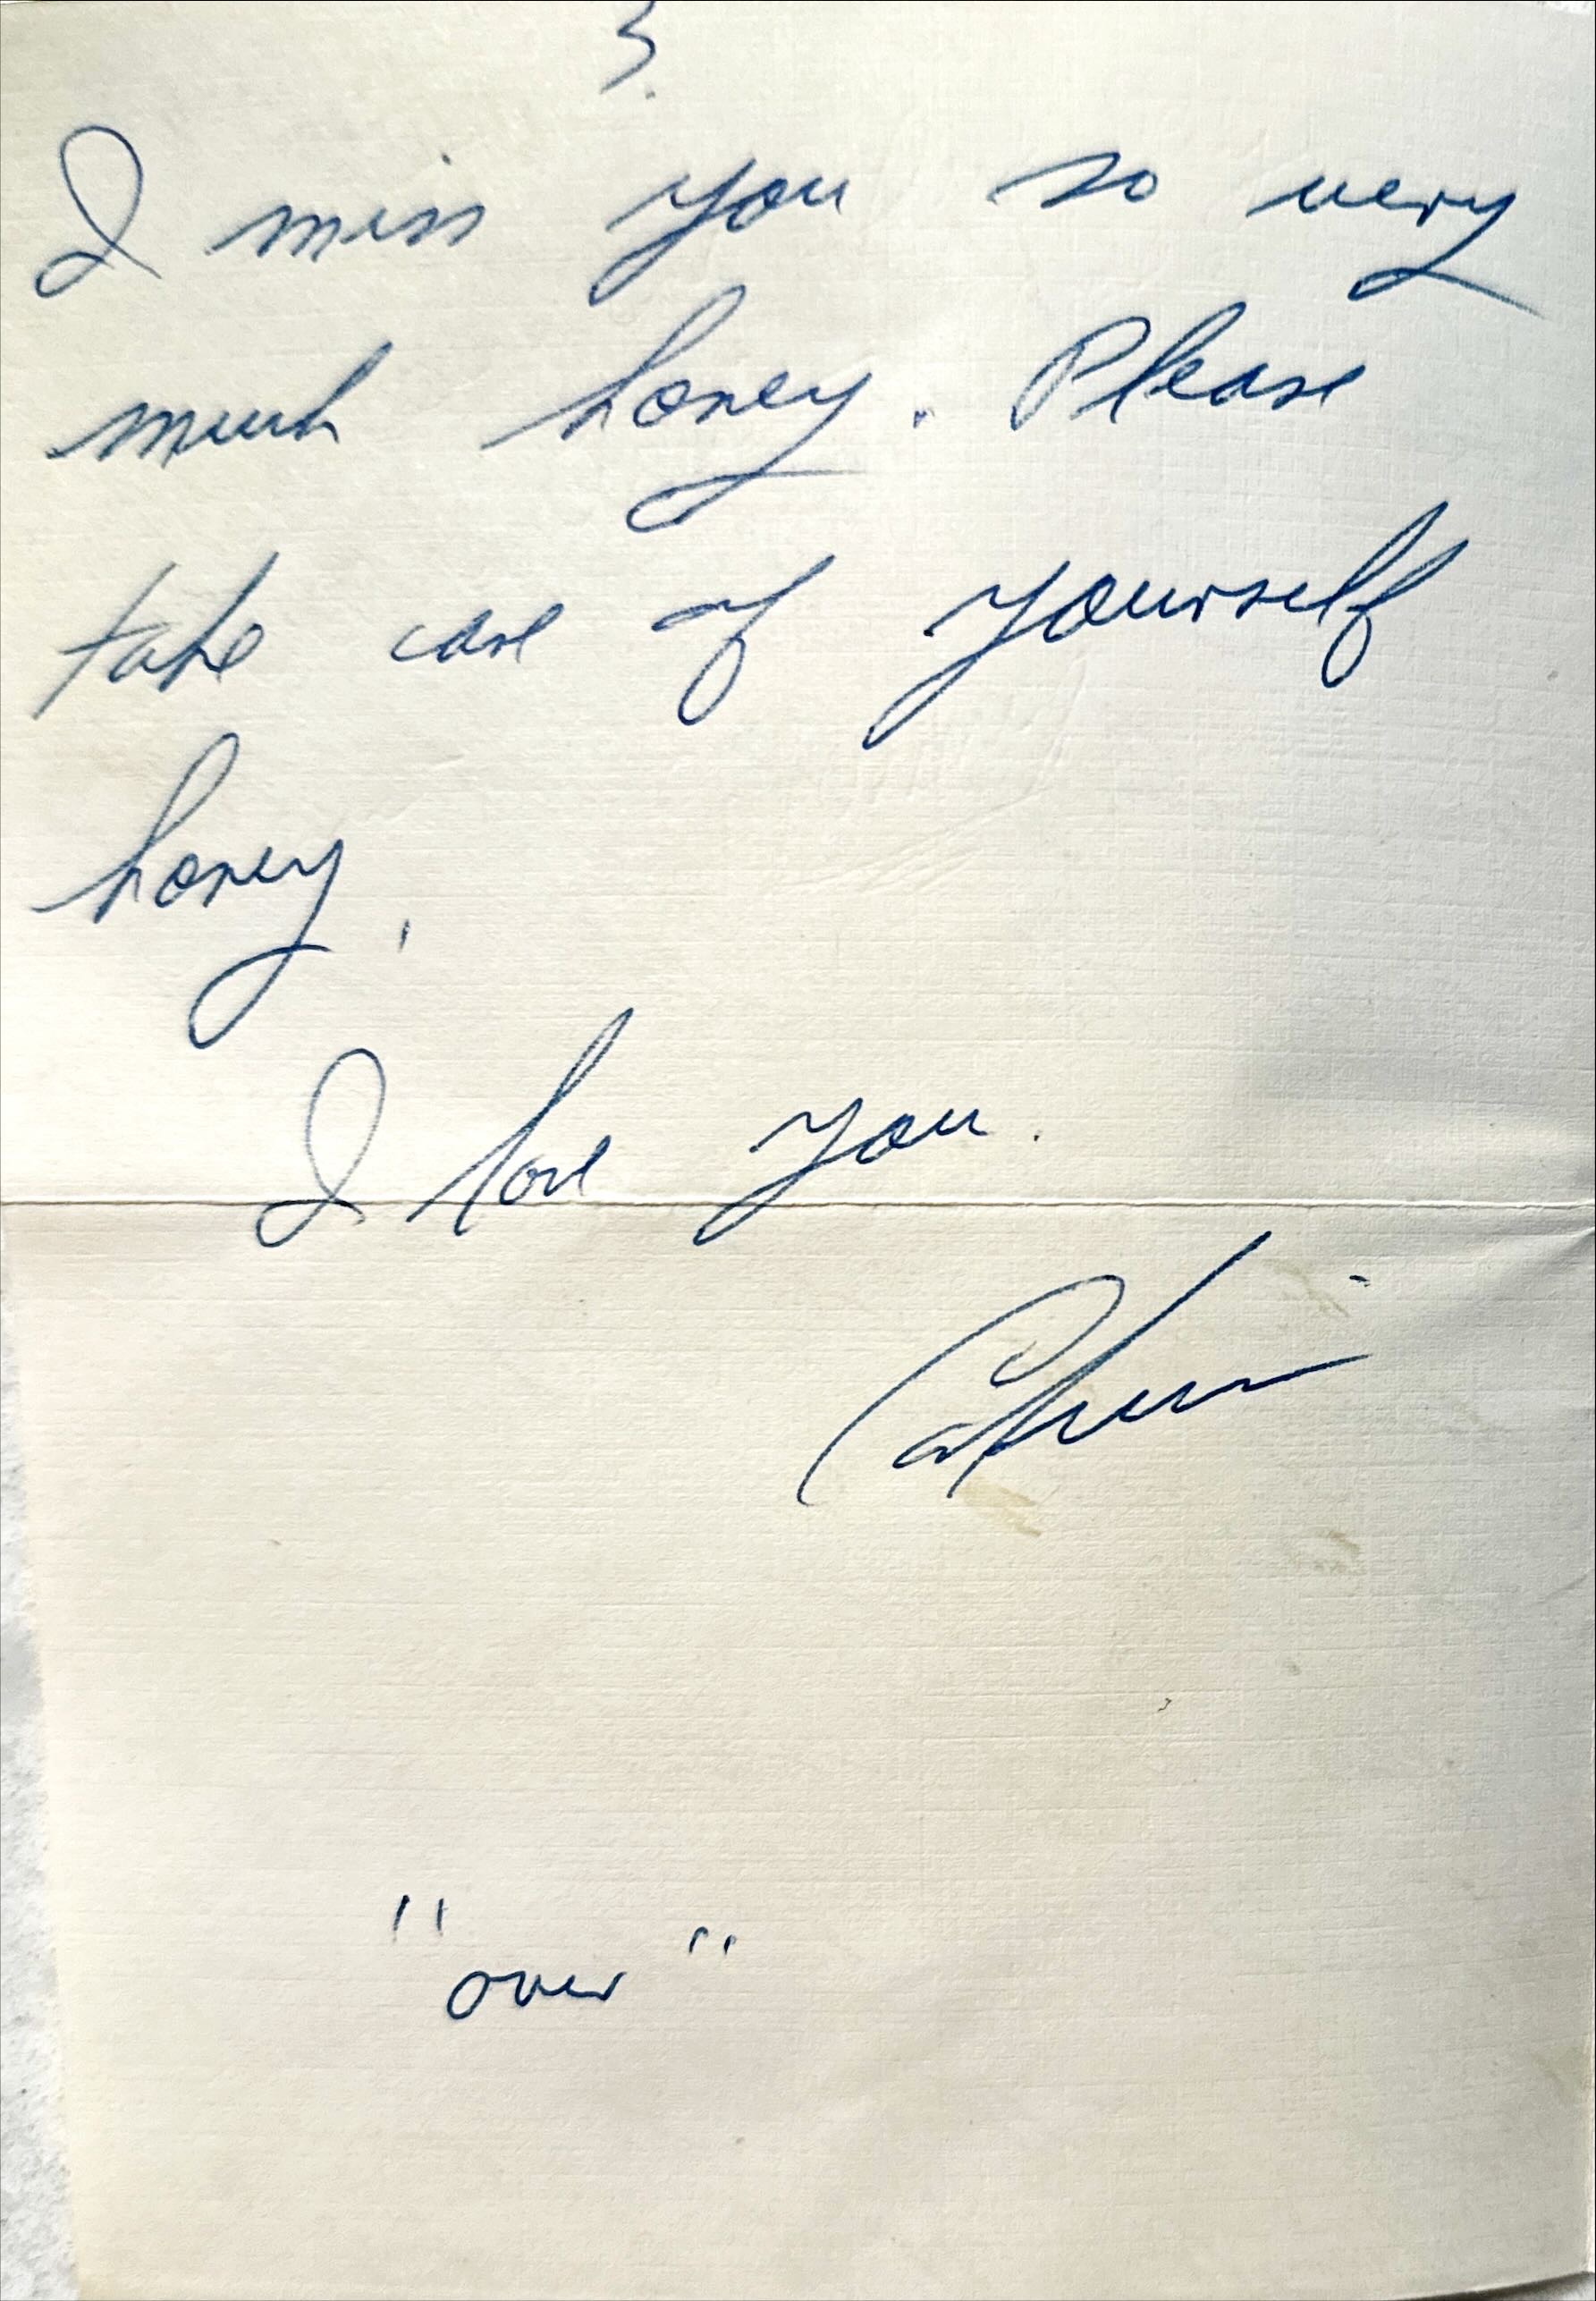 3.
I miss you so very
much honey. Please
take care of yourself
honey,
I love you.
"over"